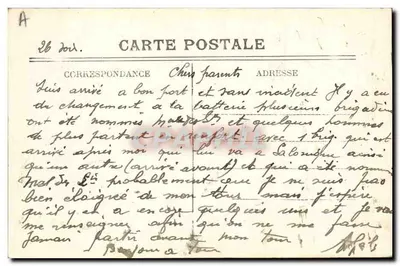 A
26 Soir.
CARTE POSTALE
CORRESPONDANCE Chers parents ADRESSE
Suis arrivé a bon port et sans incident Il y a eu
du changement a la batterie plusieurs brigadiers
ont été nommés et quelques hommes
de plus partent en renfort avec 1 brig qui est
arrivé après moi qui lui va a Salonique ainsi
qu'un autre (arrivé avant) et qui a été nommé
probablement que je ne suis pas
bien éloigné de mon tour mais j'espère
qu'il y en a encore quelques uns et je vais
me renseigner afin qu'on ne me fasse
Jamais partir avant mon tour
Bonjour a tous